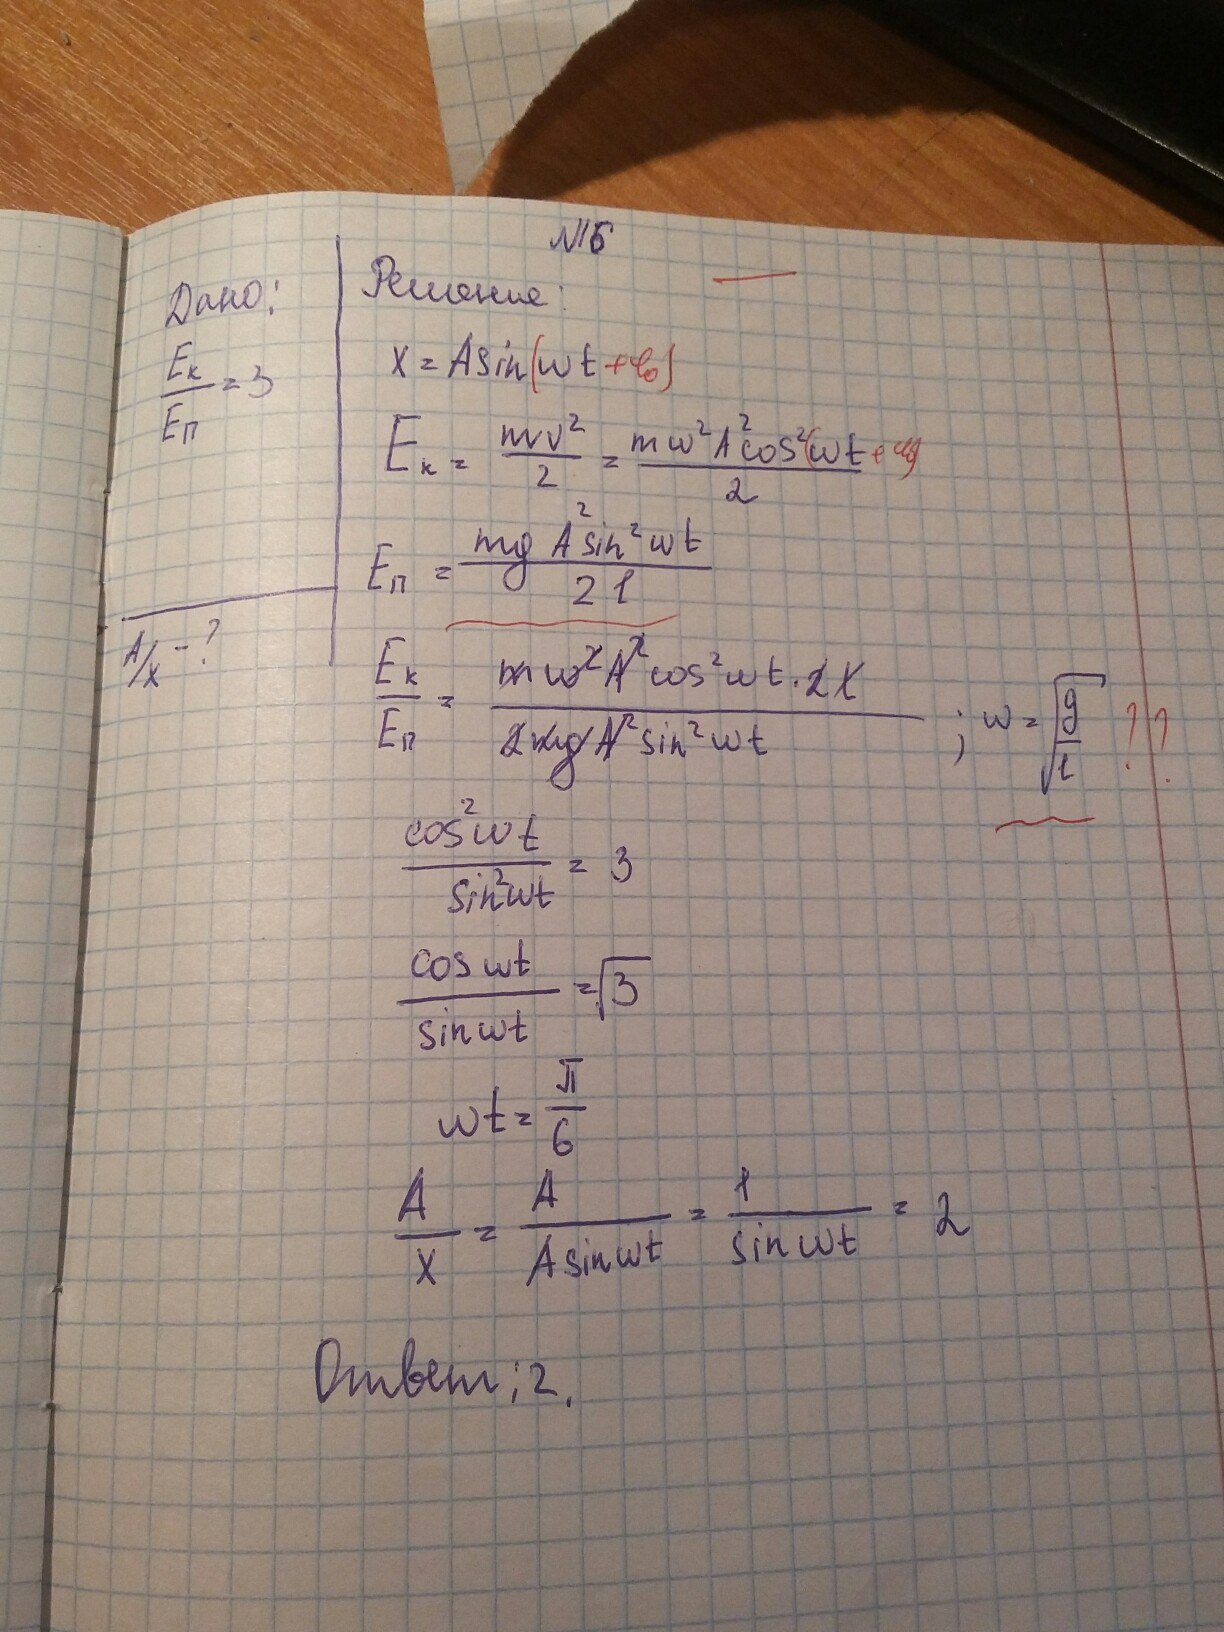 №15
Дано:
Eк/Eп = 3
A/x - ?
Решение:
x = A sin(ωt + φ₀)
Eк = mv²/2 = mω²A²cos²(ωt + φ₀)/2
Eп = mg A² sin² ωt / 2l
Eк/Eп = mω²A²cos²ωt · 2l / 2mgA²sin²ωt ; ω = √(g/l) ??
cos²ωt / sin²ωt = 3
cos ωt / sin ωt = √3
ωt = π/6
A/x = A / A sin ωt = 1 / sin ωt = 2
Ответ: 2.